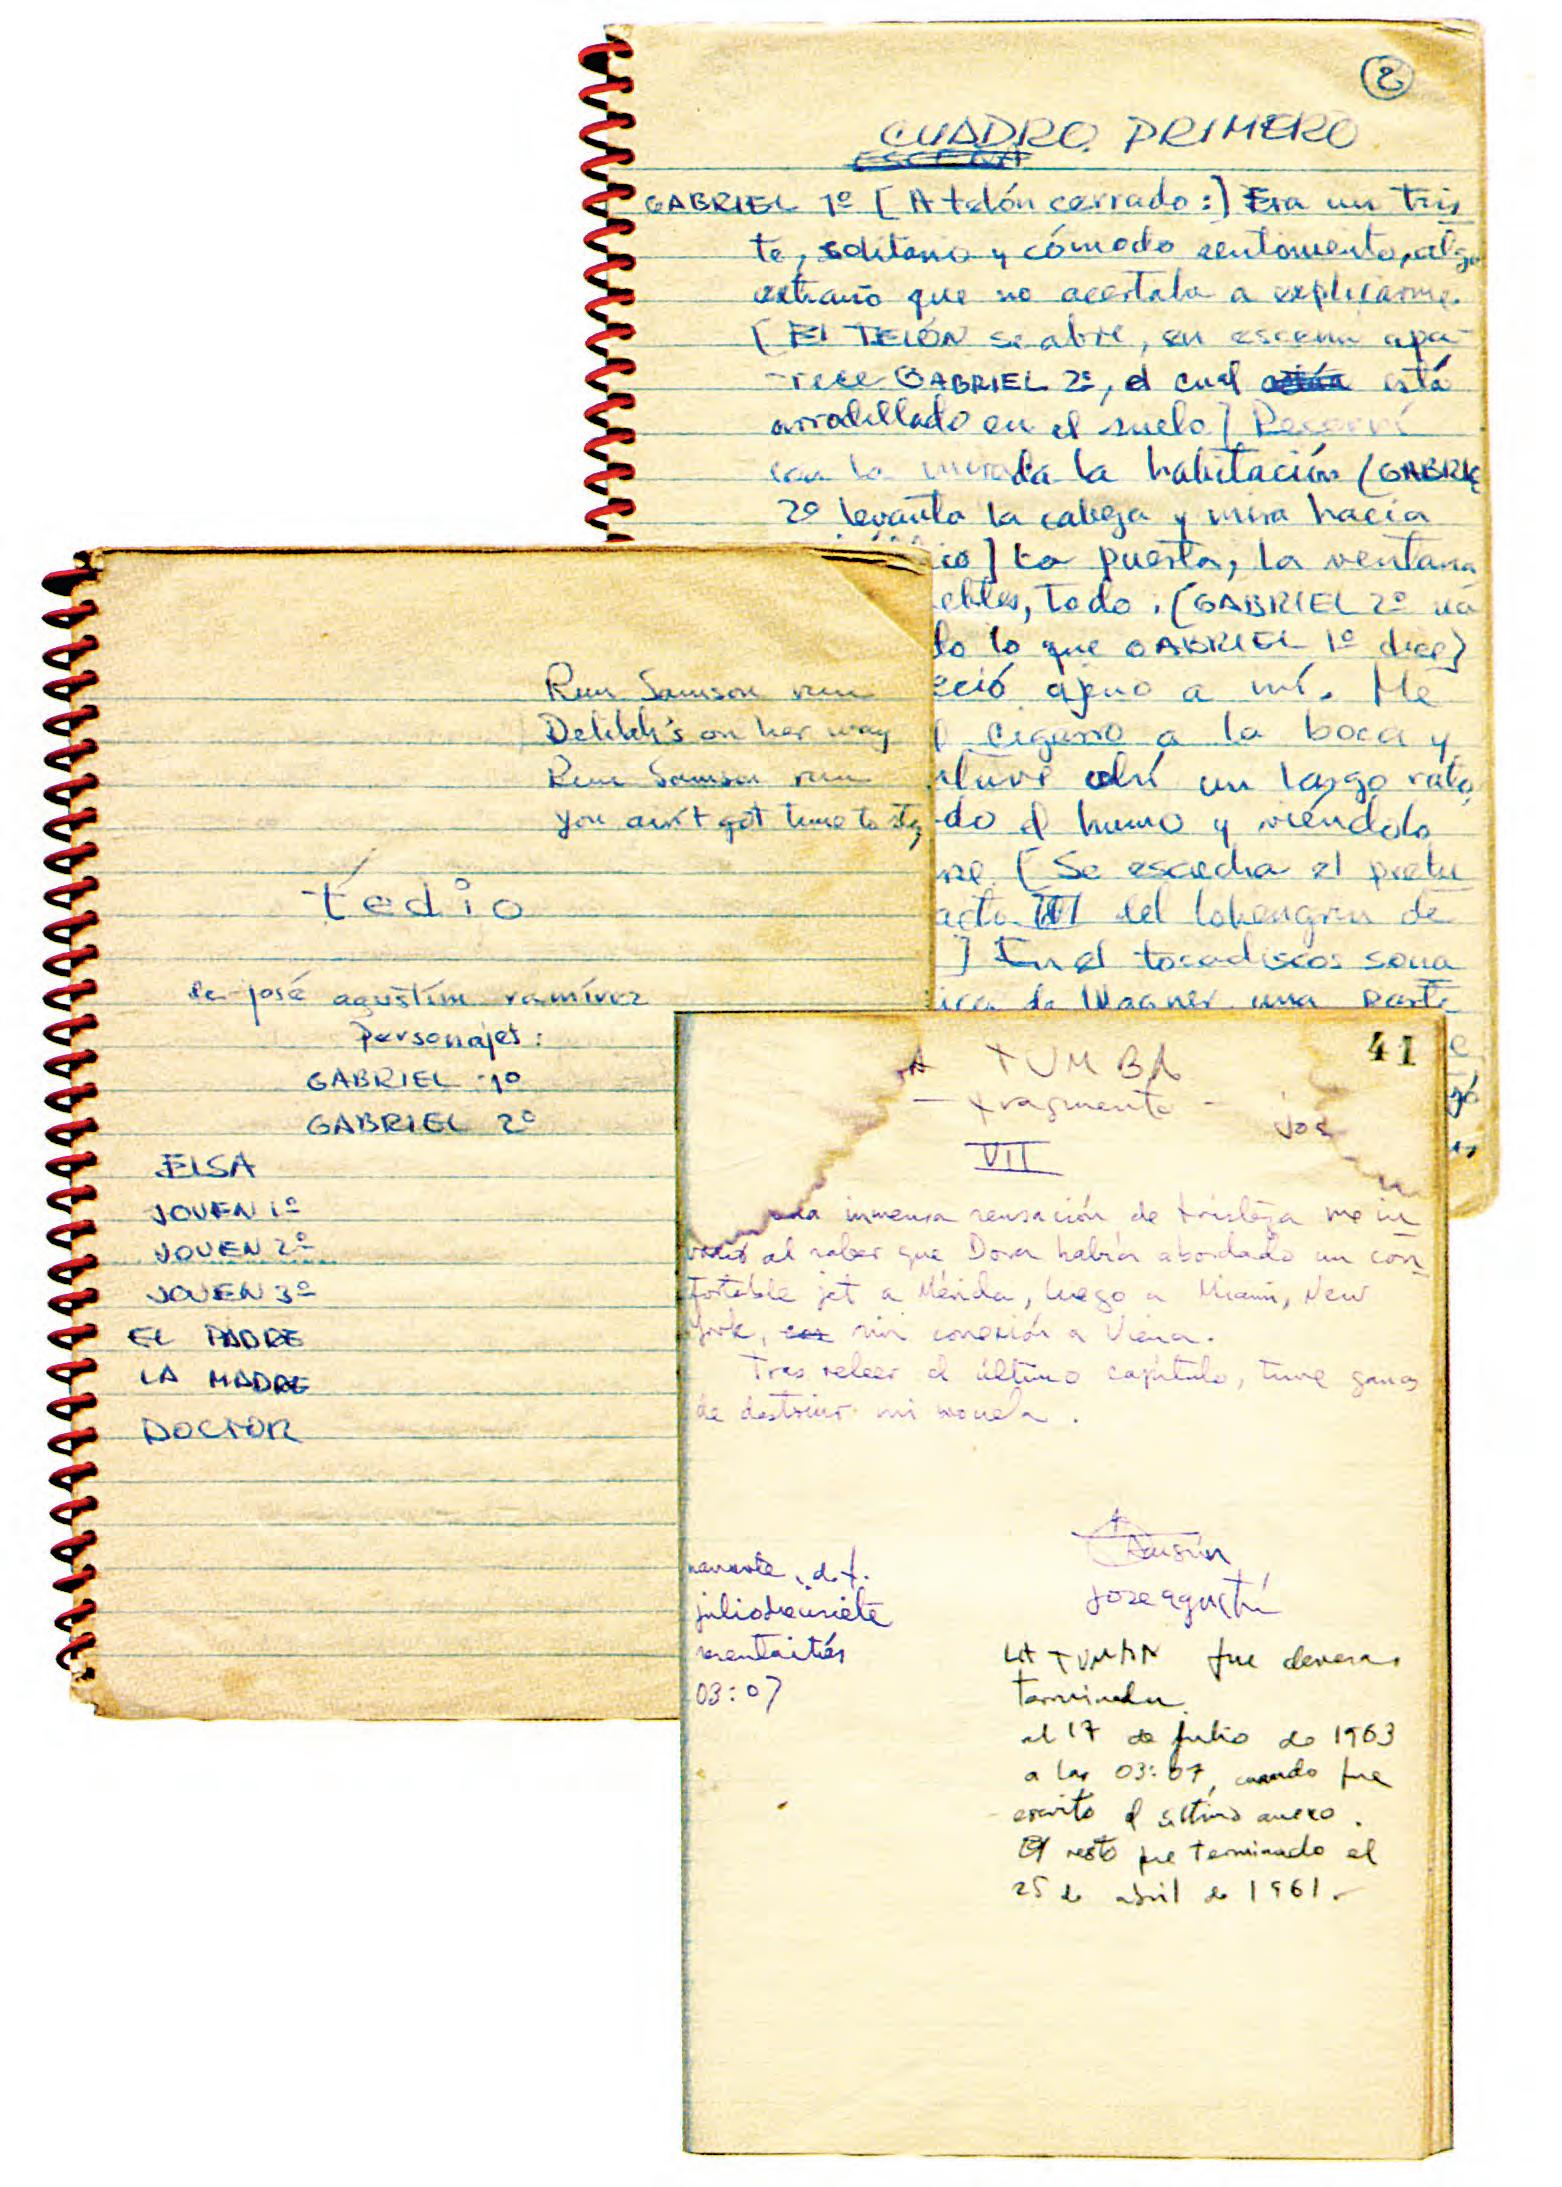 2
CUADRO PRIMERO
ESCENA
GABRIEL 1º [A telón cerrado:] Era un tris
te, solitario y cómodo sentimento, algo
extraño que no acertaba a explicarme.
[El TELÓN se abre, en escena apa-
-rece GABRIEL 2º, el cual está
arrodillado en el suelo] Recorrí
con la mirada la habitación (GABRIE
2º levanta la cabeza y mira hacia
ico] La puerta, la ventana
ebles, todo. (GABRIEL 2º va
do lo que GABRIEL 1º dice)
eció ajeno a mí. Me
cigarro a la boca y
ntuve ahí un largo rato,
do el humo y viéndolo
rse. [Se escucha el prelu
acto III del Lohengrin de
] En el tocadiscos sona
sica de Wagner una parte
Run Samson run
Delilah's on her way
Run Samson run
you ain't got time to stay
tedio
de josé agustín ramírez
Personajes:
GABRIEL 1º
GABRIEL 2º
ELSA
JOVEN 1º
JOVEN 2º
JOVEN 3º
EL PADRE
LA MADRE
DOCTOR
41
A TUMBA
- fragmento -
jos
VII
una inmensa sensación de tristeza me in
vadió al saber que Dora había abordado un con
fortable jet a Mérida, luego a Miami, New
York, sin conexión a Viena.
Tras releer el último capítulo, tuve ganas
de destruir mi novela.
narvarte, d.f.
juliodiecisiete
sesentaitrés
03:07
Agustín
joseagustín
LA TUMBA fue deveras
terminada
el 17 de julio de 1963
a las 03:07, cuando fue
escrito el último anexo.
El resto fue terminado el
25 de abril de 1961.-